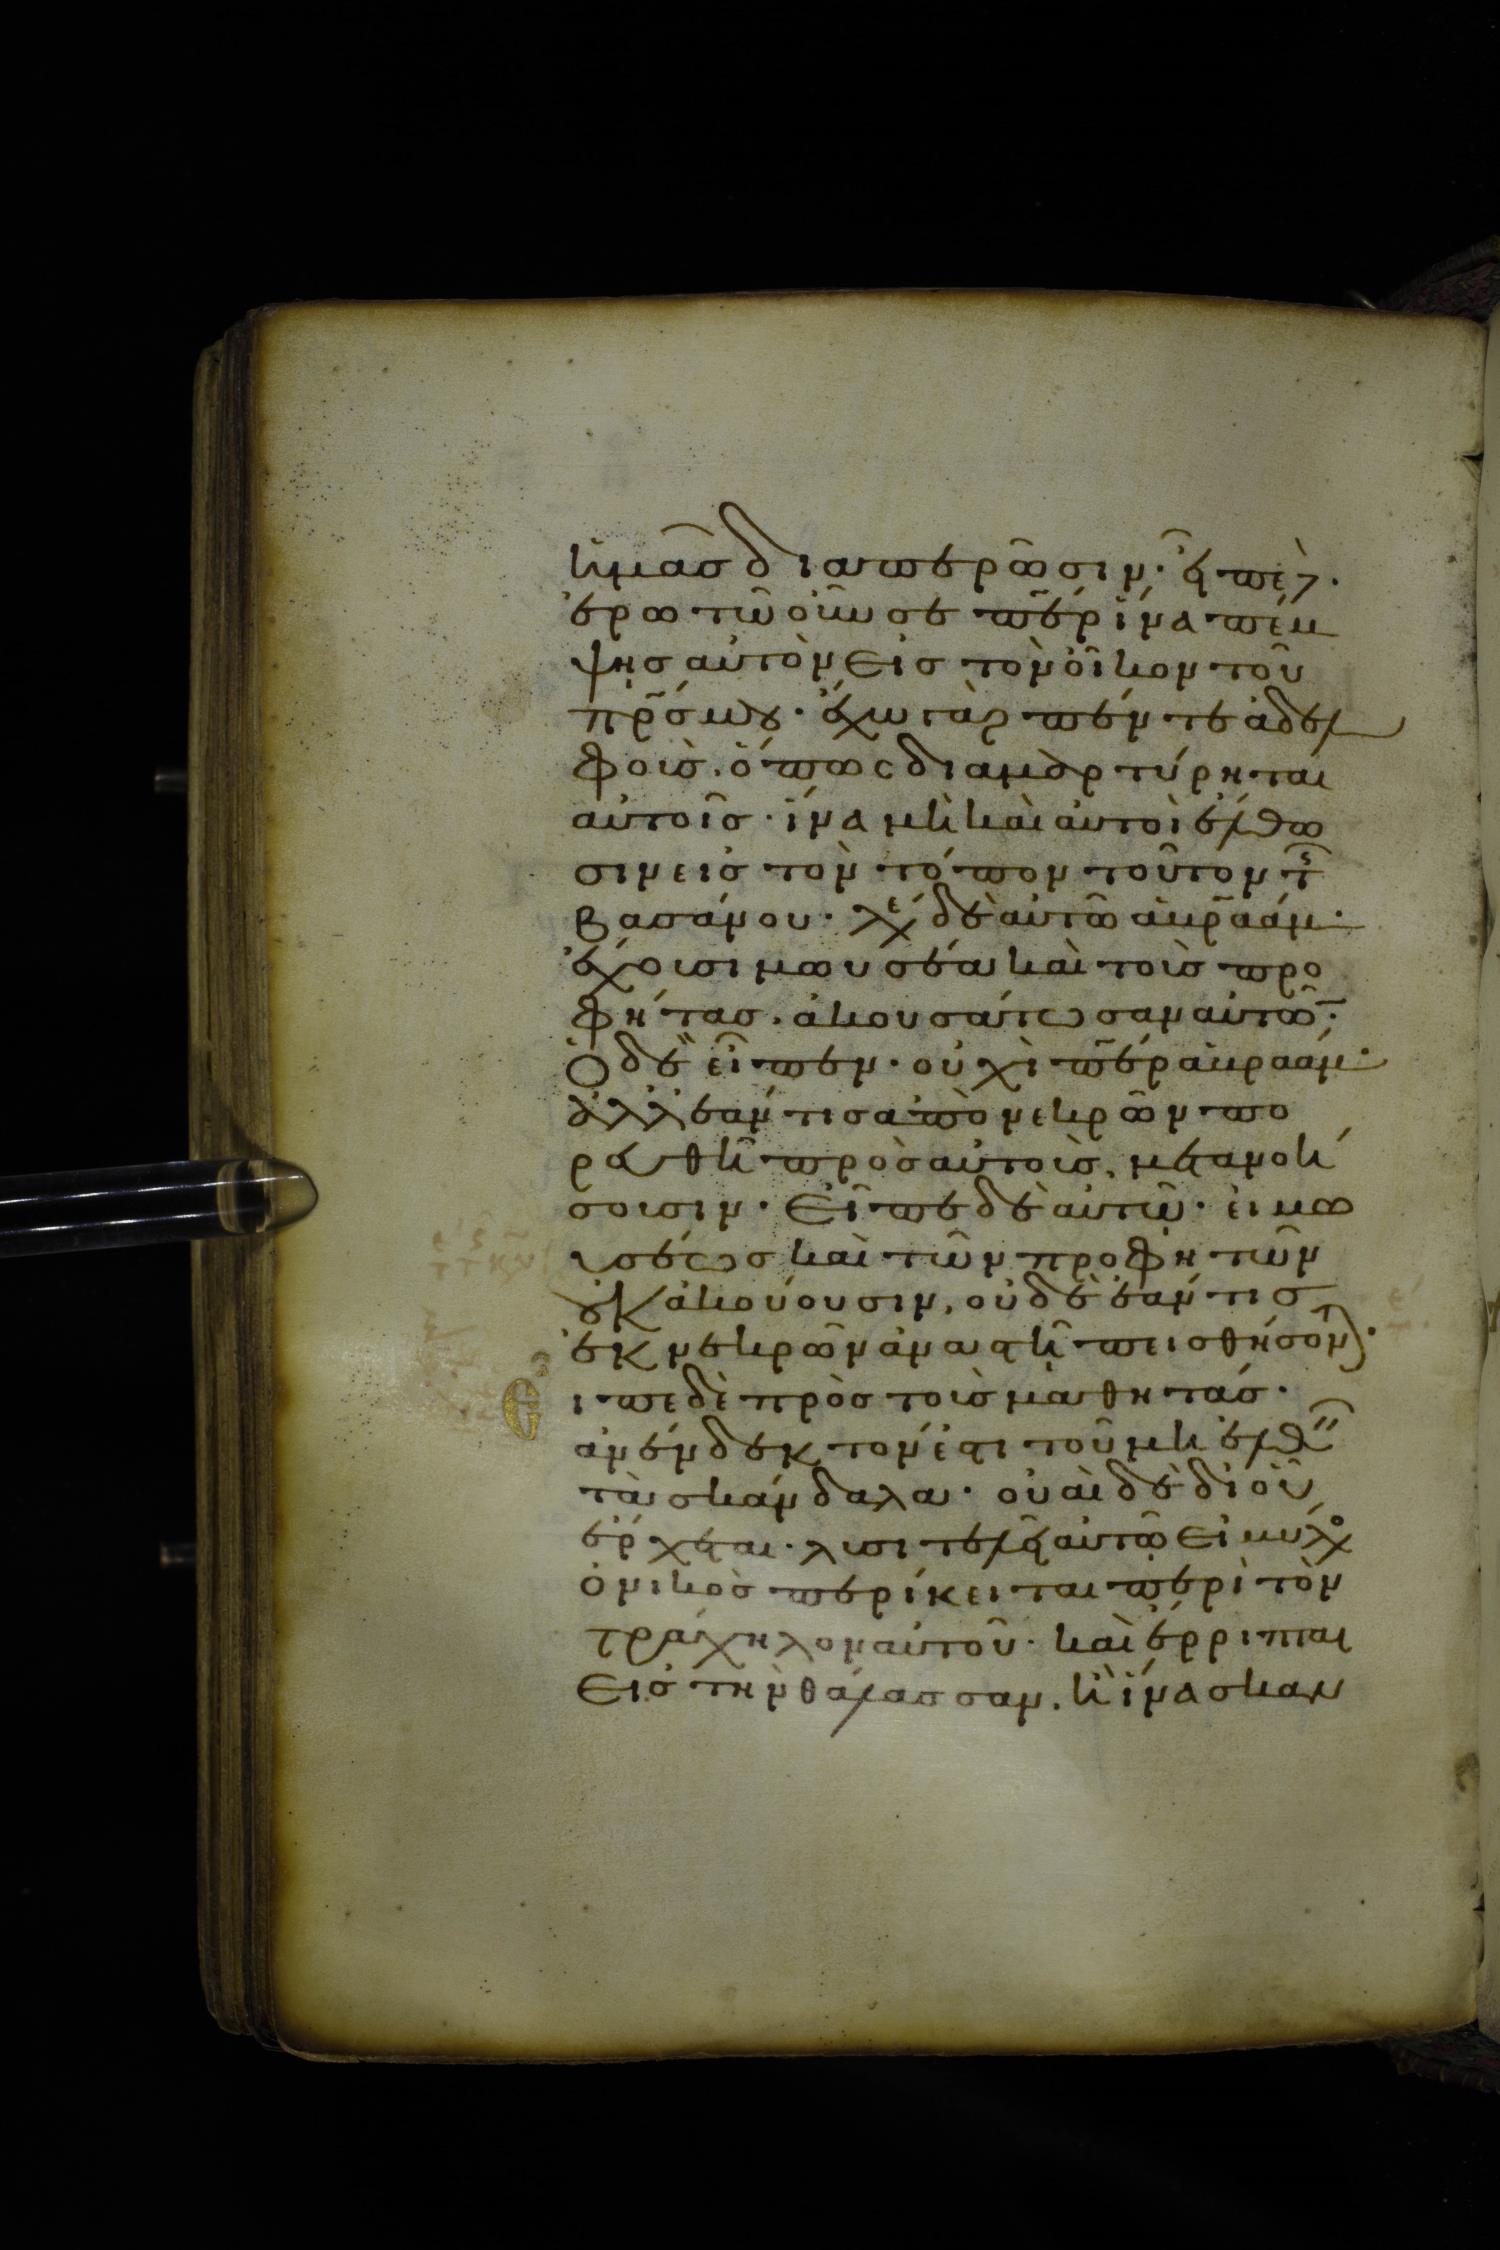 ἡμᾶσ διαπερῶσιν· εἶπε δ(ὲ)·
ἐρωτῶ οὖν σε πε̄ρ ἵνα πέμ
ψησ αὐτὸν εἰσ τὸν οἶκον τοῦ
πρ̄σ μου· ἔχω γὰρ πέντε ἀδελ
φούσ. ὅπωσ διαμαρτύρηται
αὐτοῖσ· ἵνα μὴ καὶ αὐτοὶ ἔλθω
σιν εἰσ τὸν τόπον τοῦτον τῆσ
βασάνου· λέγει δὲ αὐτῶ ἀβρ̄αάμ·
ἔχουσι μωυσέα καὶ τοὺσ προ
φήτασ. ἀκουσάτωσαν αὐτῶν·
Ὁ δὲ εἶπεν· οὐχὶ πε̄ρ ἀβραάμ·
ἀλλ' ἐάν τισ ἀπὸ νεκρῶν πο
ρευθῆ πρὸσ αὐτοὺσ, μετανοή
σουσιν· Εἶπε δὲ αὐτῶ· εἰ μω
υσέωσ καὶ τῶν προφητῶν
οὐκ ἀκούουσιν, οὐδὲ ἐάν τισ
ἐκ νεκρῶν ἀναστῆ πεισθήσον(ται)·
Εἶπε δὲ πρὸσ τοὺσ μαθητάσ·
ἀνένδεκτόν ἐστι τοῦ μὴ ἐλθεῖν
τὰ σκάνδαλα· οὐαὶ δὲ δι' οὗ
ἔρχεται· λυσιτελεῖ αὐτῶ εἰ μύλοσ
ὀνικὸσ περίκειται περὶ τὸν
τράχηλον αὐτοῦ· καὶ ἔρριπται
Εἰσ τὴν θάλασσαν, ἢ ἵνα σκαν